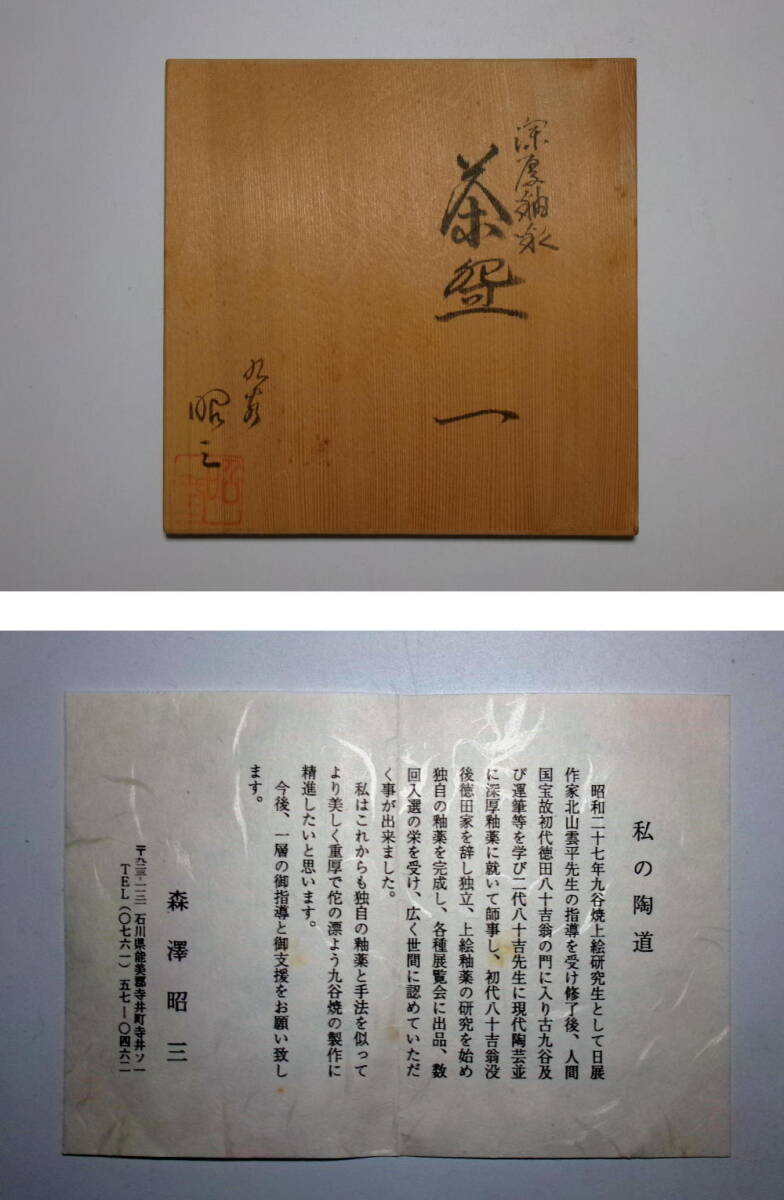 深厚釉彩
茶盌 一
九谷
昭三
私の陶道
昭和二十七年九谷焼上絵研究生として日展
作家北山雲平先生の指導を受け修了後、人間
国宝故初代徳田八十吉翁の門に入り古九谷及
び運筆等を学び二代八十吉先生に現代陶芸並
に深厚釉薬に就いて師事し、初代八十吉翁没
後徳田家を辞し独立、上絵釉薬の研究を始め
独自の釉薬を完成し、各種展覧会に出品、数
回入選の栄を受け、広く世間に認めていただ
く事が出来ました。
私はこれからも独自の釉薬と手法を似って
より美しく重厚で佗の漂よう九谷焼の製作に
精進したいと思います。
今後、一層の御指導と御支援をお願い致し
ます。
森澤昭三
〒九二三-一一 石川県能美郡寺井町寺井ソ一
TEL(〇七六一)五七-〇四六二